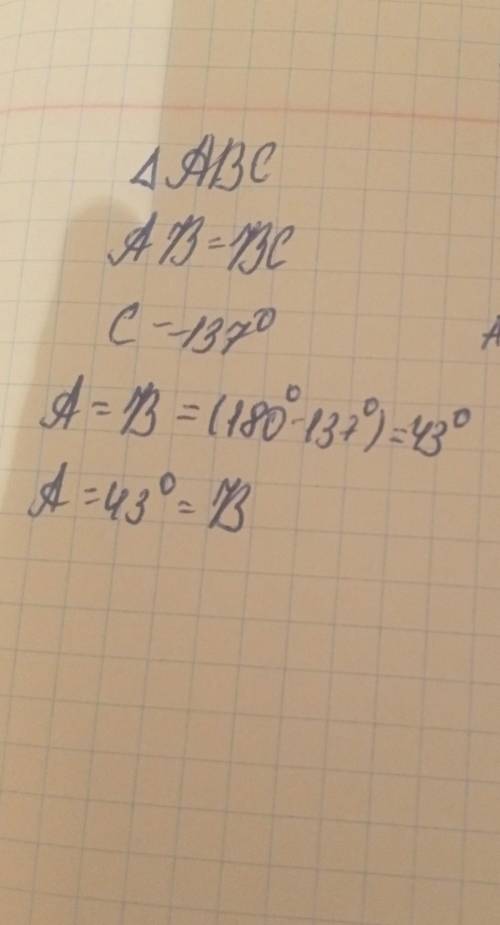 △ ABC
AB = BC
C - -137⁰
A = B = (180⁰-137⁰) = 43⁰
A = 43⁰ = B